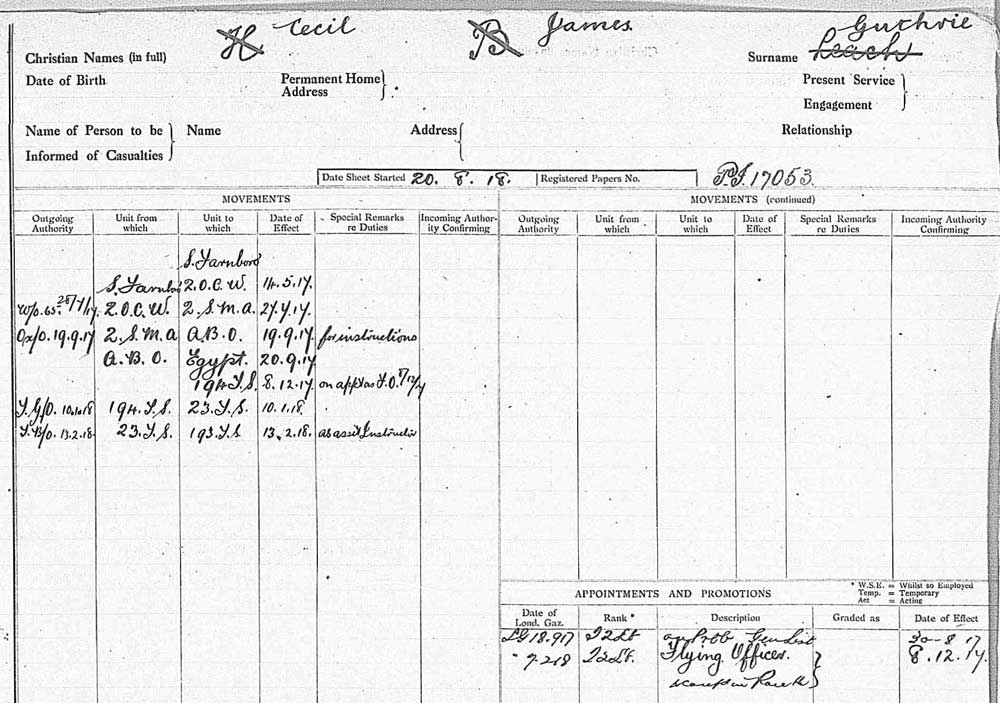 H Cecil B James. Guthrie
Christian Names (in full) Surname Leach
Date of Birth Permanent Home Address Present Service
Engagement
Name of Person to be Informed of Casualties Name Address Relationship
Date Sheet Started 20. 8. 18. Registered Papers No. P.I. 17053.
MOVEMENTS MOVEMENTS (continued)
Outgoing Authority Unit from which Unit to which Date of Effect Special Remarks re Duties Incoming Authority Confirming Outgoing Authority Unit from which Unit to which Date of Effect Special Remarks re Duties Incoming Authority Confirming
S. Farnboro
S. Farnboro 2.O.C.W. 14.5.17.
W/o. 65. 2.O.C.W. 2.S.M.A. 27.7.17.
Ox/o. 19.9.17 2.S.M.A A.B.O. 19.9.17 for instructions
A.B.O. Egypt. 20.9.17
194 T.S. 8.12.17. on app as F.O.
194.T.S. 23.T.S. 10.1.18.
T.B/o. 13.2.18. 23.T.S. 193.T.S 13.2.18. as asst Instructor
APPOINTMENTS AND PROMOTIONS
* W.S.E. = Whilst so Employed
Temp. = Temporary
Act = Acting
Date of Lond. Gaz. Rank * Description Graded as Date of Effect
LG 18.917 T2Lt on Prob Gen List 30-8 17
" 7.218 T2Lt. Flying Officer. 8.12.17.